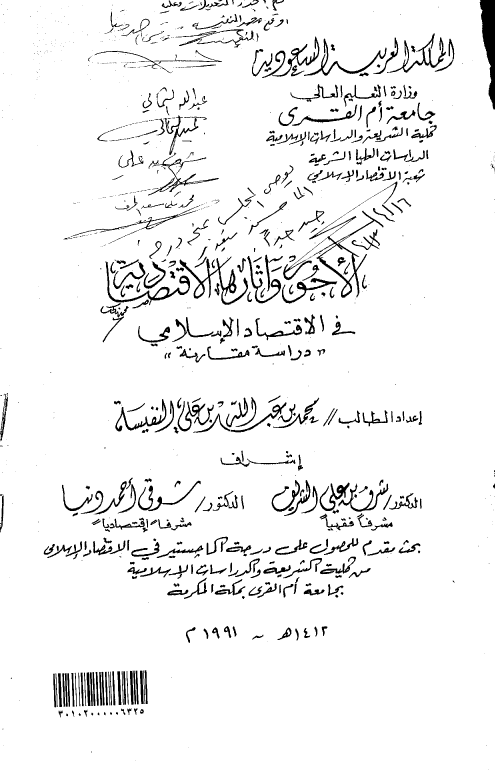 المملكة العربية السعودية
وزارة التعليم العالي
جامعة أم القرى
كلية الشريعة والدراسات الإسلامية
الدراسات العليا الشرعية
شعبة الاقتصاد الإسلامي
عبدالله الشمالي
يوصي المجلس بمنح درجة
جيد جداً
الأجور وآثارها الاقتصادية
في الاقتصاد الإسلامي
"دراسة مقارنة"
إعداد الطالب // محمد بن عبد الله بن علي النفيسة
إشراف
الدكتور/ شرف بن علي الشريف الدكتور/ شوقي أحمد دنيا
مشرفاً فقهياً مشرفاً إقتصادياً
بحث مقدم للحصول على درجة الماجستير في الاقتصاد الإسلامي
من كلية الشريعة والدراسات الإسلامية
بجامعة أم القرى بمكة المكرمة
١٤١٢هـ ~ ١٩٩١م
٣٠١٠٢٠٠٠٠٠٦٣٢٥